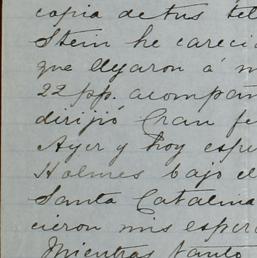 copia de tus tel
Stein he careci
que dejaron á m
22 pp. acompañ
dirijió Cran fe
Ayer y hoy espe
Holmes bajo el
Santa Catalina
cieron mis esper
Mientras tanto